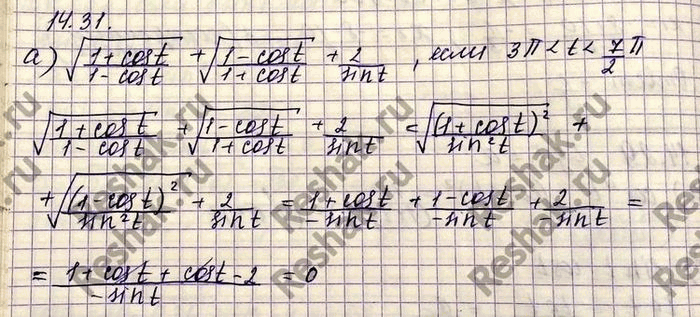 14.31.
а) √((1+cos t)/(1-cos t)) + √((1-cos t)/(1+cos t)) + 2/sin t , если 3π < t < 7/2 π
√((1+cos t)/(1-cos t)) + √((1-cos t)/(1+cos t)) + 2/sin t = √((1+cos t)²/sin² t) +
+ √((1-cos t)²/sin² t) + 2/sin t = (1+cos t)/(-sin t) + (1-cos t)/(-sin t) + 2/(-sin t) =
= (1+cos t + cos t - 2)/(-sin t) = 0
Reshak.ru